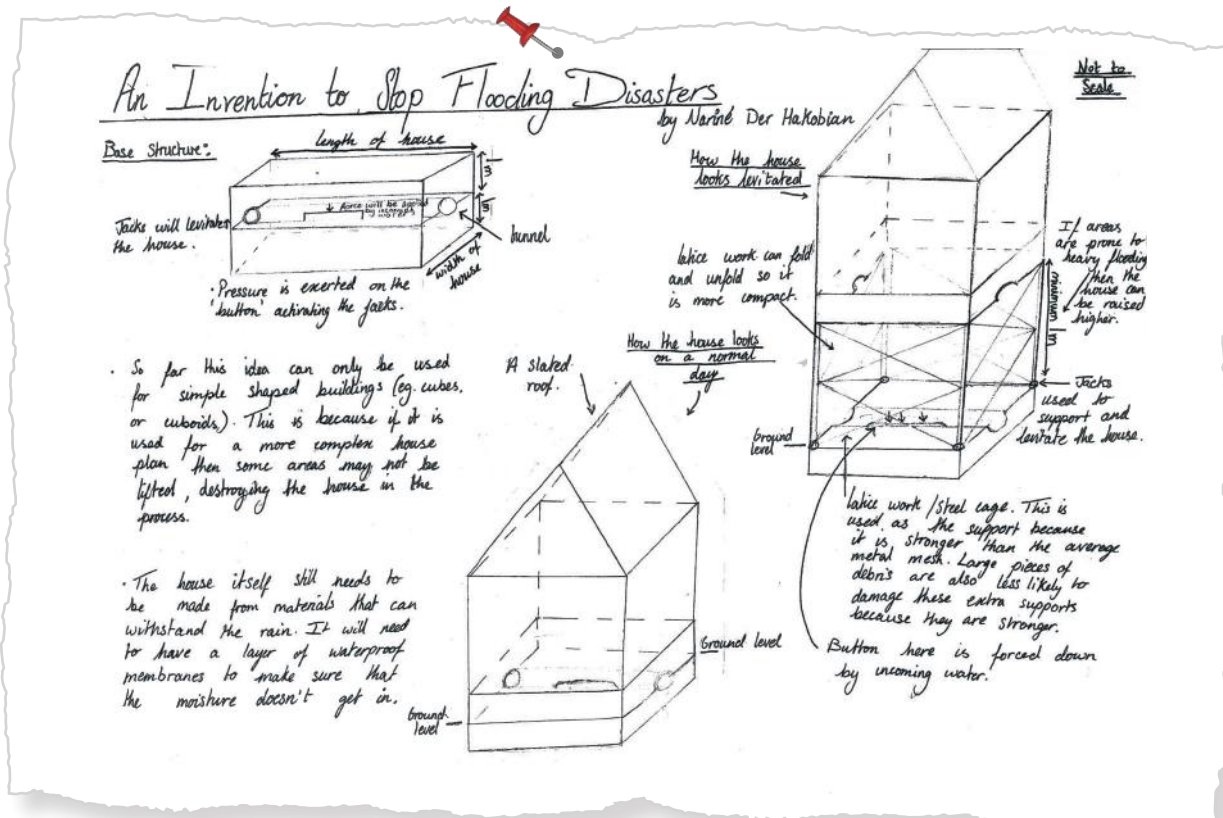 An Invention to Stop Flooding Disasters
by Nariné Der Hakobian
Not to
Scale
Base Structure:
length of house
1m
1m
force will be applied
by incoming
water
Jacks will levitate
the house.
tunnel
width of
house
· Pressure is exerted on the
'button' activating the jacks.
· So far this idea can only be used
for simple shaped buildings (eg. cubes,
or cuboids). This is because if it is
used for a more complex house
plan then some areas may not be
lifted, destroying the house in the
process.
· The house itself still needs to
be made from materials that can
withstand the rain. It will need
to have a layer of waterproof
membranes to make sure that
the moisture doesn't get in.
A slated
roof.
How the house looks
on a normal
day
Ground level
Ground
level
How the house
looks levitated
latice work can fold
and unfold so it
is more compact.
If areas
are prone to
heavy flooding
then the
house can
be raised
higher.
minimum 1m
Jacks
used to
support and
levitate the house.
Ground
level
latice work / steel cage. This is
used as the support because
it is stronger than the average
metal mesh. Large pieces of
debris are also less likely to
damage these extra supports
because they are stronger.
Button here is forced down
by incoming water.